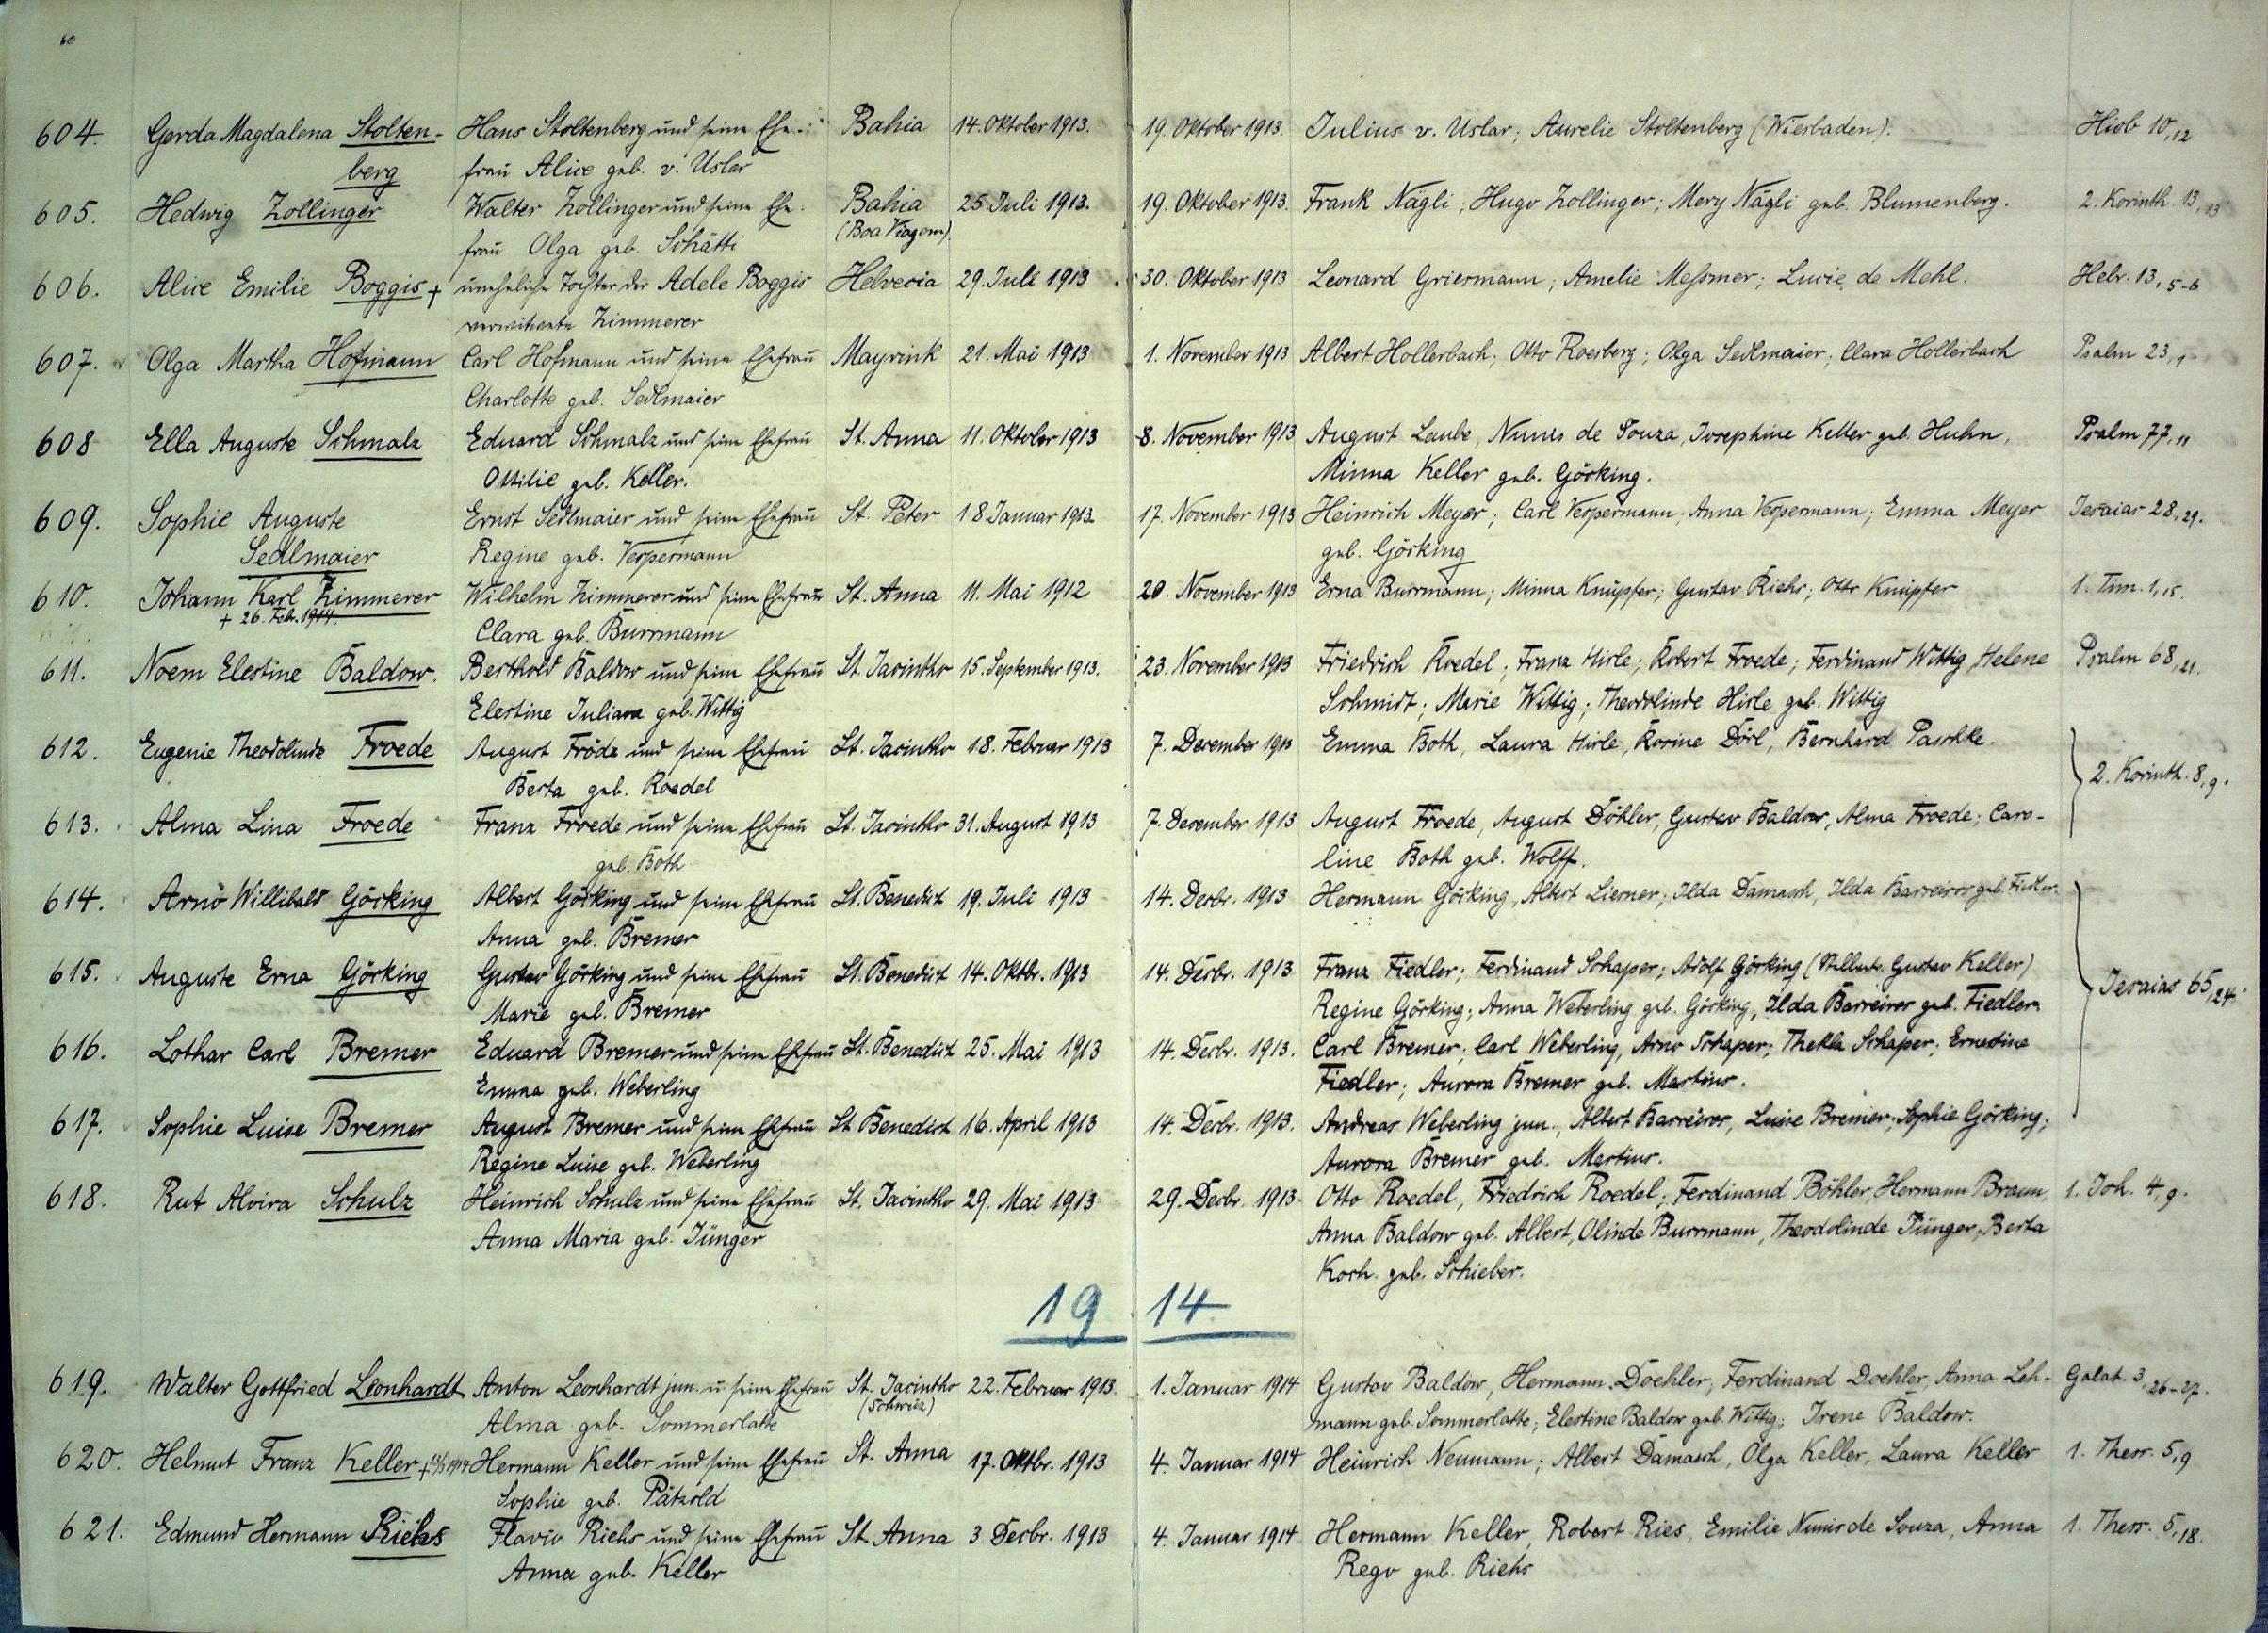 60
604. Gerda Magdalena Stolten- Hans Stoltenberg und seine Ehe- Bahia 14. Oktober 1913. 19. Oktober 1913. Julius v. Uslar; Aurelie Stoltenberg (Wiesbaden). Hiob 10,12
berg frau Alice geb. v. Uslar
605. Hedwig Zollinger Walter Zollinger und seine Ehe- Bahia 25. Juli 1913. 19. Oktober 1913. Frank Nägli; Hugo Zollinger; Mery Nägli geb. Blumenberg. 2. Korinth. 13,13
frau Olga geb. Schätti (Boa Viagem)
606. Alice Emilie Boggis + uneheliche Tochter der Adele Boggis Helvecia 29. Juli 1913 30. Oktober 1913 Leonard Griermann; Amelie Meßmer; Lucie de Mehl. Hebr. 13,5-6
verwitwete Zimmerer
607. Olga Martha Hofmann Carl Hofmann und seine Ehefrau Mayrink 21. Mai 1913 1. November 1913 Albert Hollerbach; Otto Roesberg; Olga Sedlmaier; Clara Hollerbach Psalm 23,1
Charlotte geb. Sedlmaier
608 Ella Auguste Schmalz Eduard Schmalz und seine Ehefrau St. Anna 11. Oktober 1913 8. November 1913 August Laube, Nunes de Souza, Josephine Keller geb. Huhn, Psalm 77,11
Ottilie geb. Keller. Minna Keller geb. Görking.
609. Sophie Auguste Ernst Sedlmaier und seine Ehefrau St. Peter 18 Januar 1913. 17. November 1913 Heinrich Meyer; Carl Vespermann; Anna Vespermann; Emma Meyer Jesaias 28,29.
Sedlmaier Regine geb. Vespermann geb. Görking
610. Johann Karl Zimmerer Wilhelm Zimmerer und seine Ehefrau St. Anna 11. Mai 1912 20. November 1913 Erna Burrmann; Minna Knüpfer; Gustav Riehs; Otto Knüpfer 1. Tim. 1,15.
+ 26. Feb. 1914. Clara geb. Burrmann
611. Noem Elestine Baldow. Berthold Baldow und seine Ehefrau St. Jacintho 15. September 1913. 23. November 1913 Friedrich Roedel; Franz Hirle; Robert Froede; Ferdinand Wittig, Helene Psalm 68,21.
Elestine Juliana geb. Wittig Schmidt; Marie Wittig; Theodolinde Hirle geb. Wittig
612. Eugenie Theodolinde Froede August Fröde und seine Ehefrau St. Jacintho 18. Februar 1913 7. Dezember 1913 Emma Both, Laura Hirle, Korine Dörl, Bernhard Paschke.
Berta geb. Roedel 2. Korinth. 8,9.
613. Alma Lina Froede Franz Froede und seine Ehefrau St. Jacintho 31. August 1913 7. Dezember 1913 August Froede, August Döhler, Gustav Baldow, Alma Froede; Caro-
geb. Both line Both geb. Wolff.
614. Arno Willibald Görking Albert Görking und seine Ehefrau St. Benedict 19. Juli 1913 14. Dezbr. 1913 Hermann Görking, Albert Liesner; Ilda Damasch, Ilda Barreiros geb. Fiedler.
Anna geb. Bremer
615. Auguste Erna Görking Gustav Görking und seine Ehefrau St. Benedict 14. Oktbr. 1913 14. Dezbr. 1913 Franz Fiedler; Ferdinand Schaper; Adolf Görking (Stellvertr. Gustav Keller) Jesaias 65,24.
Marie geb. Bremer Regine Görking; Anna Weberling geb. Görking, Ilda Barreiros geb. Fiedler
616. Lothar Carl Bremer Eduard Bremer und seine Ehefrau St. Benedict 25. Mai 1913 14. Dezbr. 1913. Carl Bremer; Carl Weberling, Arno Schaper; Thekla Schaper; Ernestine
Emma geb. Weberling Fiedler; Aurora Bremer geb. Martins.
617. Sophie Luise Bremer August Bremer und seine Ehefrau St Benedict 16. April 1913 14. Dezbr. 1913. Andreas Weberling jun., Albert Barreiros, Luise Bremer; Sophie Görking;
Regine Luise geb. Weberling Aurora Bremer geb. Martins.
618. Rut Alvira Schulz Heinrich Schulz und seine Ehefrau St. Jacintho 29. Mai 1913 29. Dezbr. 1913 Otto Roedel, Friedrich Roedel; Ferdinand Böhler, Hermann Braun, 1. Joh. 4,9.
Anna Maria geb. Jünger Anna Baldow geb. Albert, Olinde Burrmann, Theodolinde Jünger, Berta
Koch geb. Schieber.
19 14
619. Walter Gottfried Leonhardt Anton Leonhardt jun. u. seine Ehefrau St. Jacintho 22. Februar 1913. 1. Januar 1914 Gustav Baldow, Hermann Doehler, Ferdinand Doehler, Anna Leh- Galat. 3,26-27.
Alma geb. Sommerlatte (Schweiz) mann geb. Sommerlatte; Elestine Baldow geb. Wittig; Irene Baldow.
620. Helmut Franz Keller Hermann Keller und seine Ehefrau St. Anna 17. Oktbr. 1913 4. Januar 1914 Heinrich Neumann; Albert Damasch, Olga Keller, Laura Keller 1. Thess. 5,9
Sophie geb. Pätzold
621. Edmund Hermann Riehs Flavio Riehs und seine Ehefrau St. Anna 3 Dezbr. 1913 4. Januar 1914 Hermann Keller, Robert Ries, Emilie Nunis de Souza, Anna 1. Thess. 5,18.
Anna geb. Keller Rego geb. Riehs